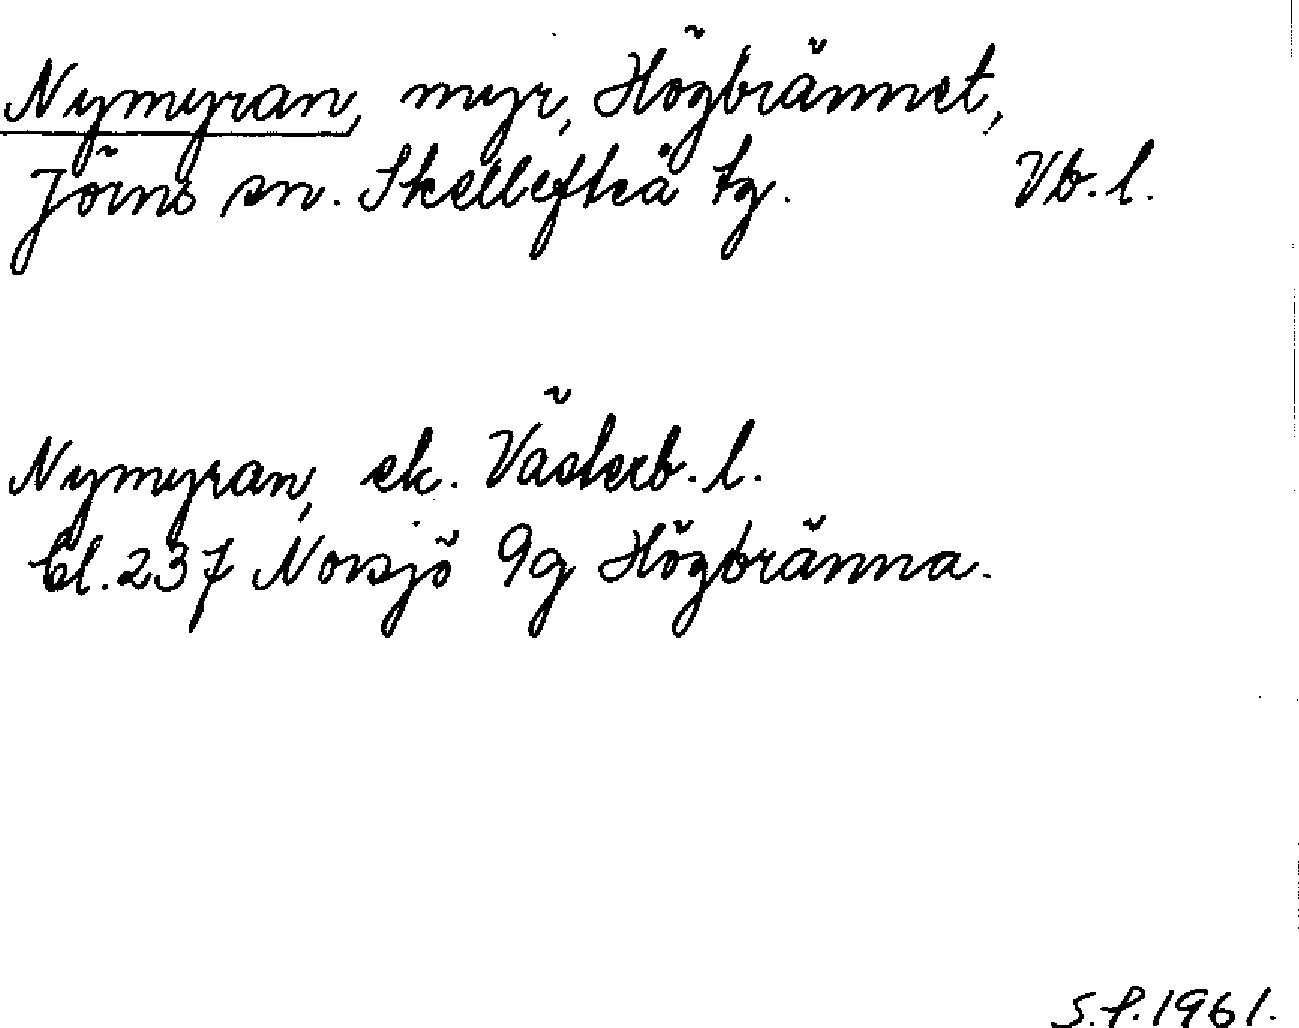 Nymyran, myr, Högbrännet,
Jörns sn. Skellefteå tg. Vb. l.
Nymyran, ek. Västerb. l.
bl. 237 Norsjö 9g Högbränna.
S.P. 1961.